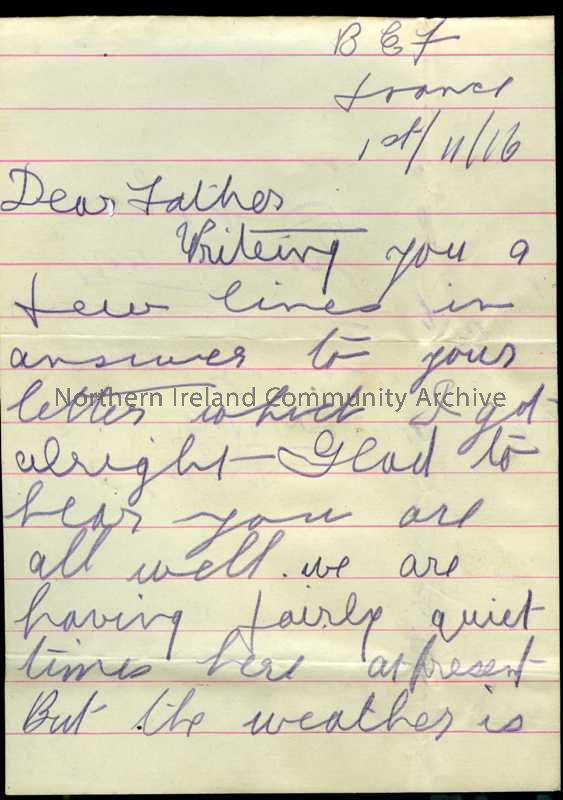 B E F
France
1st/11/16
Dear Father
Writeing you a
few lines in
answer to your
letter which I got
Northern Ireland Community Archive
alright Glad to
hear you are
all well. we are
having fairly quiet
times here at present
But the weather is